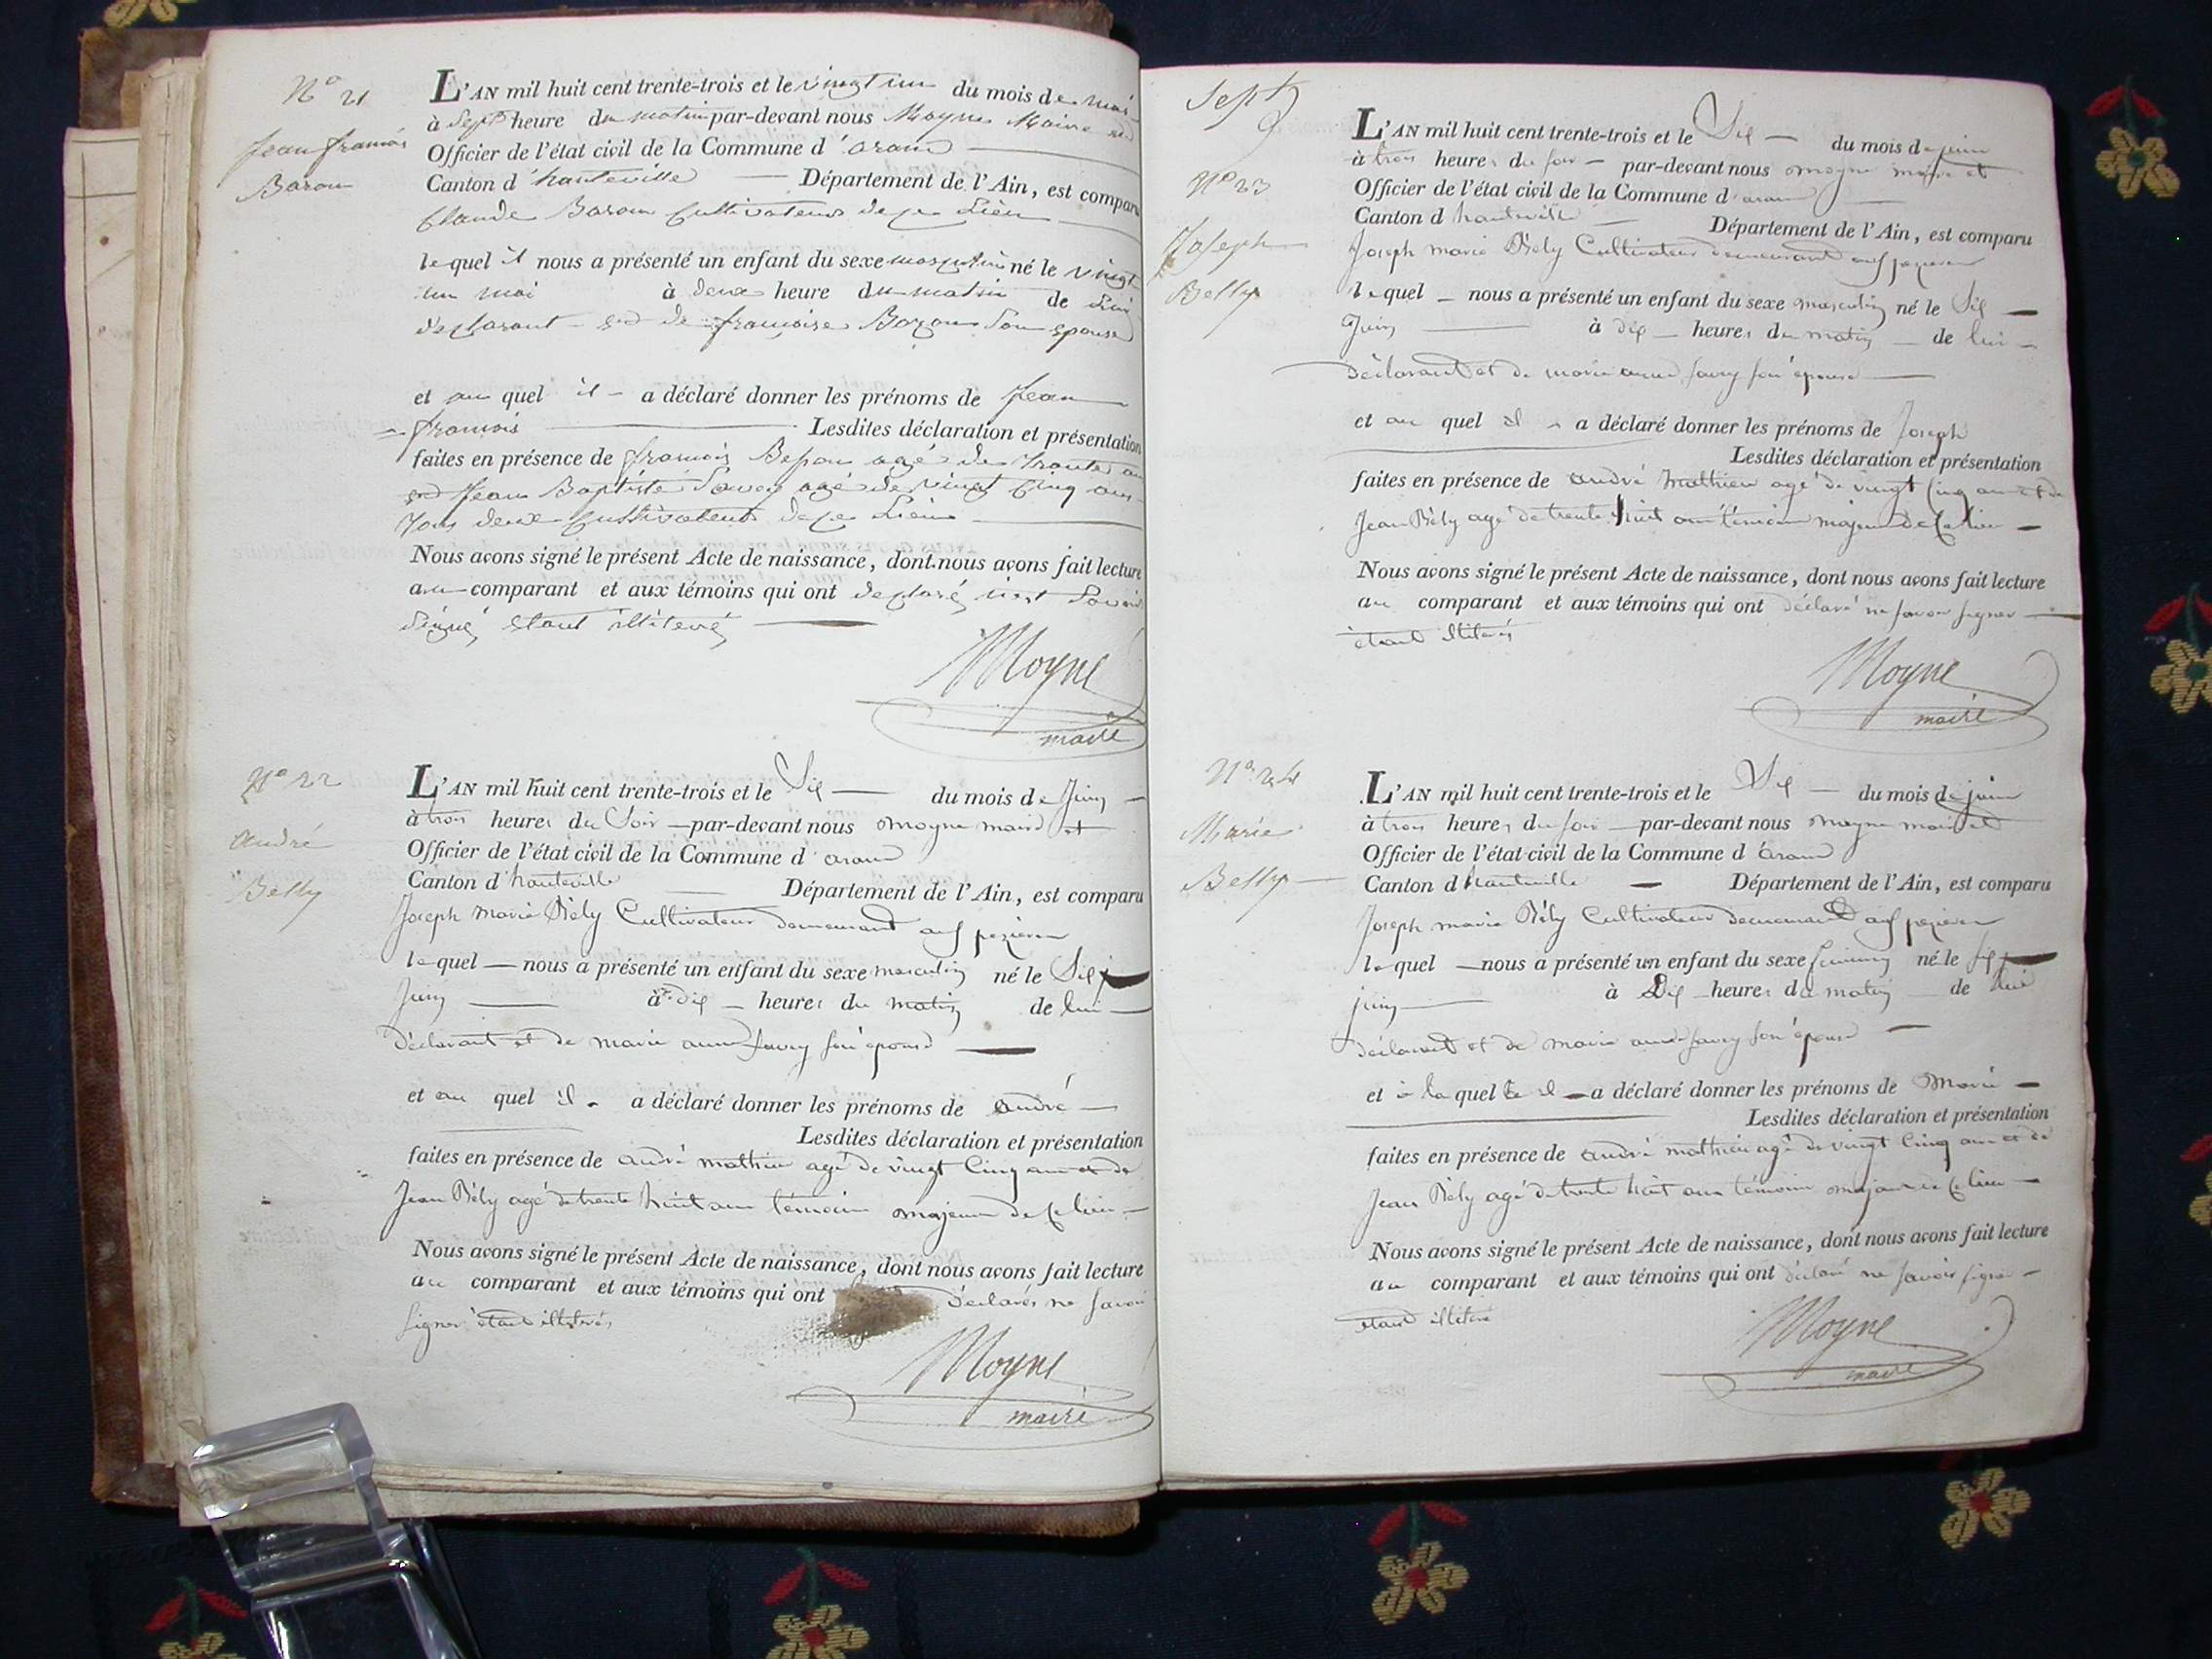 N° 21
Jean françois
Baron
L'AN mil huit cent trente-trois et le vingt un du mois de mai
à sept heure du matin par-devant nous Moyne Maire
Officier de l'état civil de la Commune d'aran
Canton d'hauteville Département de l'Ain, est comparu
Claude Cultivateur de ce Lieu
lequel il nous a présenté un enfant du sexe masculin né le vingt
un mai à deux heure du matin de Lui
déclarant de françoise son epouse
et au quel il a déclaré donner les prénoms de Jean
françois Lesdites déclaration et présentation
faites en présence de françois agé de trante an
Jean Baptiste agé de vingt Cinq ans
Tous deux Cultivateurs de ce Lieu
Nous avons signé le présent Acte de naissance, dont nous avons fait lecture
au comparant et aux témoins qui ont
Moyne
maire
N° 22
André
Belly
L'AN mil huit cent trente-trois et le Six du mois de Juin
à trois heures du Soir par-devant nous moyne maire et
Officier de l'état civil de la Commune d'aran
Canton d'hauteville Département de l'Ain, est comparu
Joseph Marie Bély Cultivateur demeurant
lequel nous a présenté un enfant du sexe masculin né le Six
Juin à dix heures du matin de lui
Déclarant et de marie anne Savey son épouse
et au quel il a déclaré donner les prénoms de andré
Lesdites déclaration et présentation
faites en présence de andré mathieu agé de vingt Cinq ans et de
Jean Bély agé de trente huit ans témoins majeurs de ce lieu
Nous avons signé le présent Acte de naissance, dont nous avons fait lecture
au comparant et aux témoins qui ont déclarés ne savoir
signer étant illiterés
Moyne
maire
Sept
N° 23
Joseph
Belly
L'AN mil huit cent trente-trois et le Six du mois de juin
à trois heures du soir par-devant nous moyne maire et
Officier de l'état civil de la Commune d'aran
Canton d'hauteville Département de l'Ain, est comparu
Joseph marie Bély Cultivateur demeurant
lequel nous a présenté un enfant du sexe masculin né le Six
Juin à dix heures du matin de lui
Déclarant et de marie anne Savey son épouse
et au quel il a déclaré donner les prénoms de Joseph
Lesdites déclaration et présentation
faites en présence de andré Mathieu agé de vingt cinq ans et de
Jean Bély agé de trente huit ans témoins majeurs de ce lieu
Nous avons signé le présent Acte de naissance, dont nous avons fait lecture
au comparant et aux témoins qui ont déclaré ne savoir signer
étant illiterés
Moyne
maire
N° 24
Marie
Belly
L'AN mil huit cent trente-trois et le Six du mois de juin
à trois heures du soir par-devant nous moyne maire et
Officier de l'état civil de la Commune d'aran
Canton d'hauteville Département de l'Ain, est comparu
Joseph marie Bély Cultivateur demeurant
lequel nous a présenté un enfant du sexe feminin né le six
juin à Dix heures du matin de lui
déclarant et de marie anne Savey son épouse
et à laquelle il a déclaré donner les prénoms de Marie
Lesdites déclaration et présentation
faites en présence de andré mathieu agé de vingt Cinq ans et de
Jean Bély agé de trente huit ans témoins majeurs de ce lieu
Nous avons signé le présent Acte de naissance, dont nous avons fait lecture
au comparant et aux témoins qui ont déclaré ne savoir signer
étant illiteré
Moyne
maire